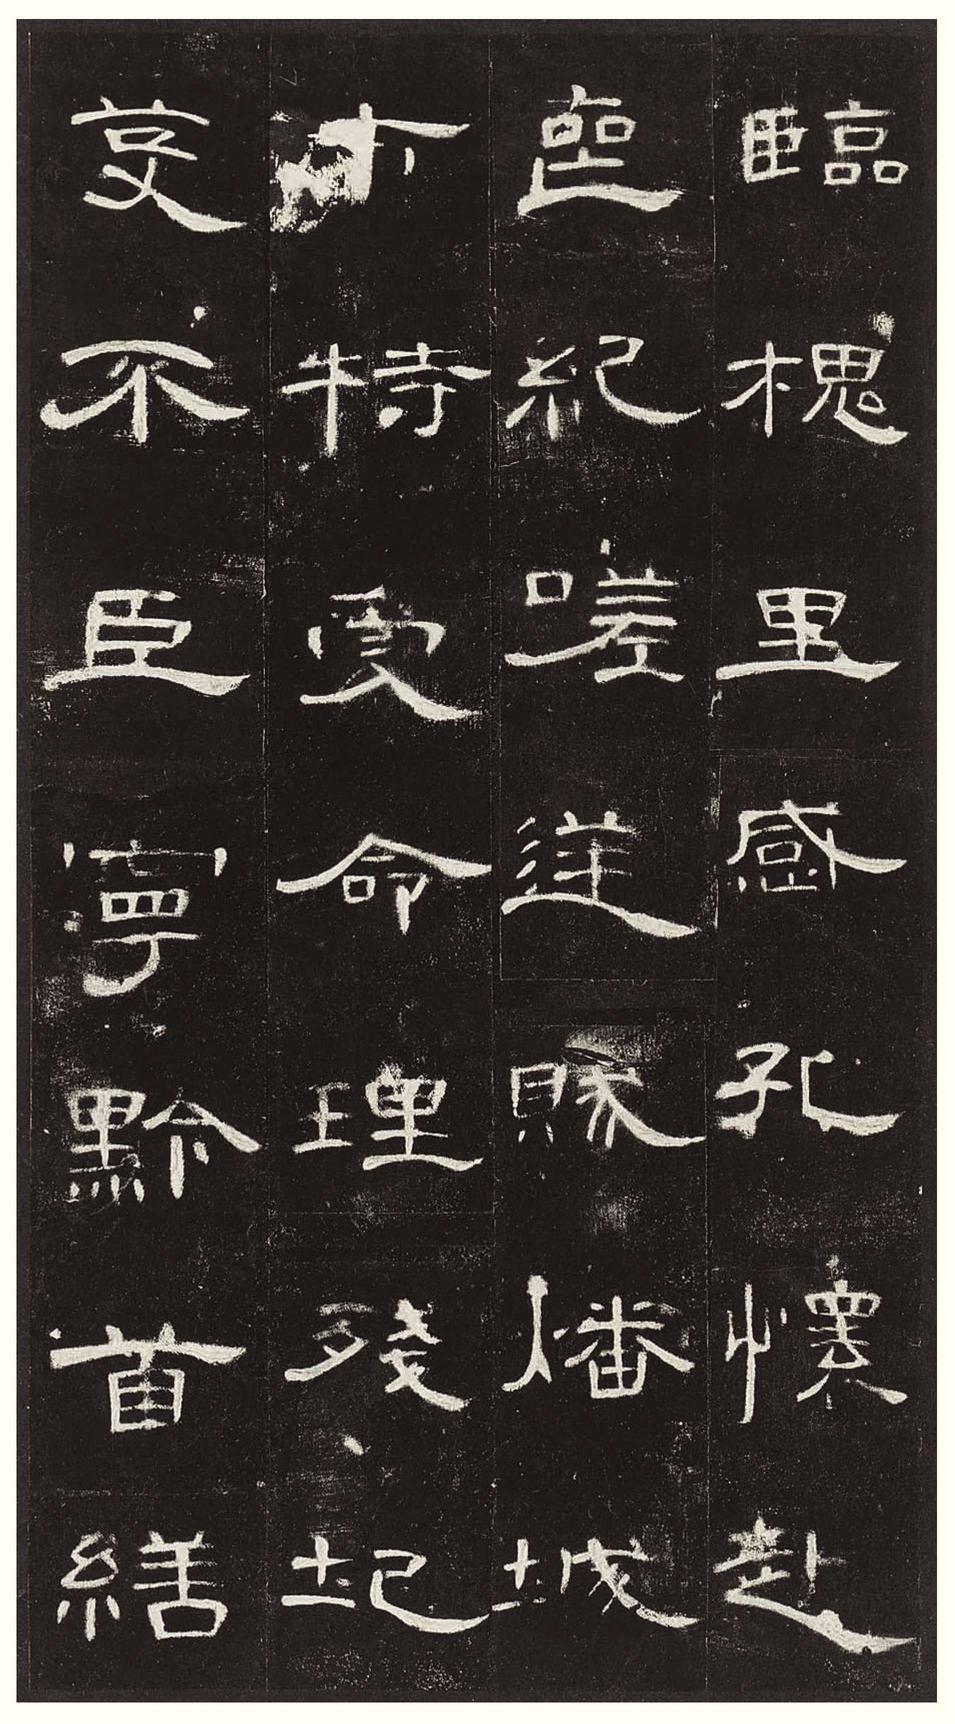 臨槐里感孔懷赴
喪紀嗟逆賊燔城
市特受命理殘圮
芟不臣寧黔首繕